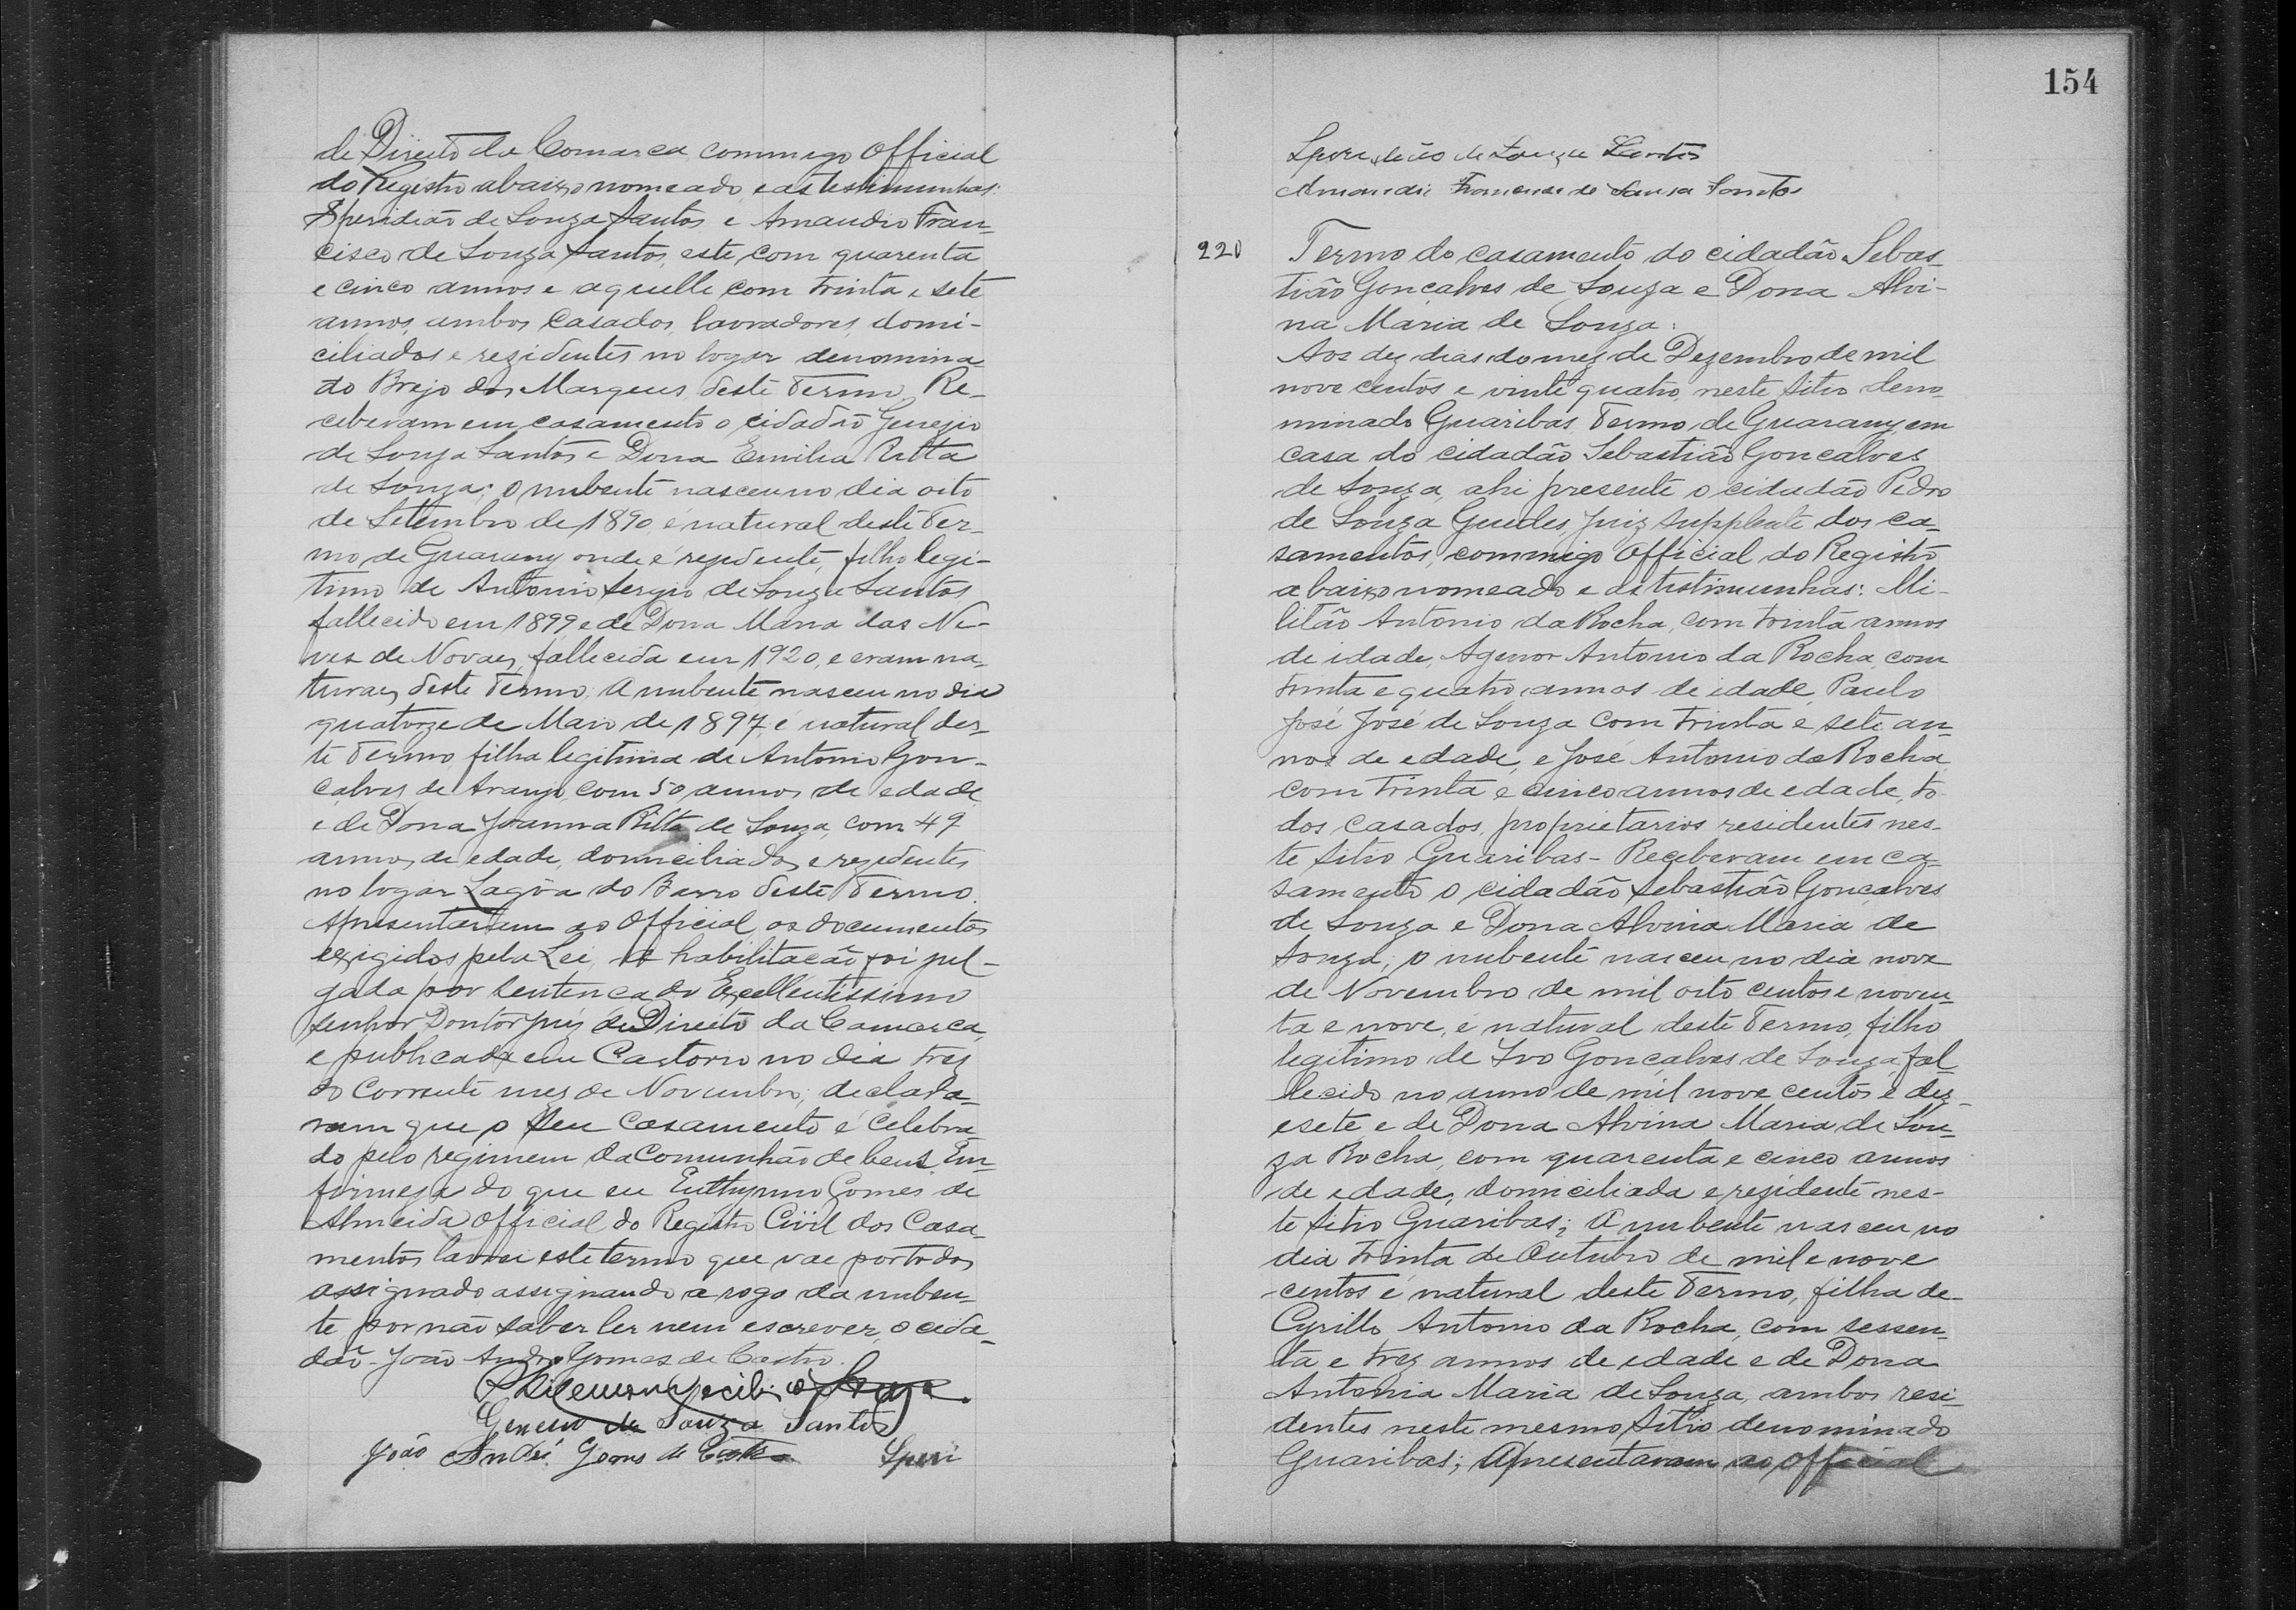 de Direito da Comarca, commigo Official
do Registro abaixo nomeado, e as testimunhas:
Speridião de Souza Santos e Amaudio Fran-
cisco de Souza Santos, este com quarenta
e cinco annos e aquelle com trinta e sete
annos, ambos casados, lavradores, domi-
ciliados e rezidentes no logar denomina-
do Brejo dos Marques, deste Termo. Re-
ceberam em casamento o cidadão Genezio
de Souza Santos e Dona Emilia Ritta
de Souza; O nubente nasceu no dia oito
de Setembro de 1890, é natural deste Ter-
mo de Guarany onde é rezidente, filho legi-
timo de Antonio Sergio de Souza Santos
fallecido em 1899 e de Dona Maria das Ne-
ves de Novaes, fallecida em 1920, e eram na-
turaes deste Termo; A nubente nasceu no dia
quatorze de Maio de 1897, é natural des-
te Termo, filha legitima de Antonio Gon-
çalves de Araujo, com 50 annos de edade
e de Dona Joanna Ritta de Souza, com 49
annos de edade, domiciliados e rezidentes
no logar Lagôa do Barro deste Termo.
Apresentaram ao Official os documentos
exigidos pela Lei, a habilitação foi jul-
gada por sentença do Excellentissimo
Senhor Doutor Juiz de Direito da Comarca,
e publicada em Cartorio no dia tres
do corrente mez de Novembro; declara-
ram que o seu casamento é celebra-
do pelo regimem da Comunhão de bens. Em
firmeza do que eu Euthymio Gomes de
Almeida Official do Registro Civil dos Casa-
mentos lavrei este termo que vae por todos
assignado assignando a rogo da nuben-
te por não saber ler nem escrever, o cida-
dão João André Gomes de Castro.
Genesio de Souza Santos
João André Gomes de Castro Speri
154
Speridião de Souza Santos
de Sousa Santos
220 Termo do casamento do cidadão Sebas-
tião Gonçalves de Souza e Dona Alvi-
na Maria de Souza:
Aos dez dias do mez de Dezembro de mil
nove centos e vinte quatro, neste Sitio deno-
minado Guaribas, Termo de Guarany, em
casa do cidadão Sebastião Gonçalves
de Souza, ahi presente o cidadão Pedro
de Souza Guedes, Juiz Supplente dos ca-
samentos, commigo Official do Registro
abaixo nomeado e as testimunhas: Mi-
litão Antonio da Rocha, com trinta annos
de idade, Agenor Antonio da Rocha, com
trinta e quatro annos de idade, Paulo
José José de Souza com trinta e sete an-
nos de edade, e José Antonio da Rocha
com trinta e cinco annos de edade, to-
dos casados, proprietarios residentes nes-
te Sitio Guaribas - Receberam em ca-
samento o cidadão Sebastião Gonçalves
de Souza e Dona Alvina Maria de
Souza; o nubente nasceu no dia nove
de Novembro de mil oito centos e noven-
ta e nove, é natural deste Termo, filho
legitimo de Ivo Gonçalves de Souza, fal-
lecido no anno de mil nove centos e dez-
esete, e de Dona Alvina Maria de Sou-
za Rocha, com quarenta e cinco annos
de edade, domiciliada e rezidente nes-
te Sitio Guaribas; A nubente nasceu no
dia trinta de Outubro de mil e nove
centos é natural deste Termo, filha de
Cyrillo Antonio da Rocha, com sessen-
ta e trez annos de edade e de Dona
Antonia Maria de Souza, ambos resi-
dentes neste mesmo Sitio denominado
Guaribas; Apresentaram ao Official